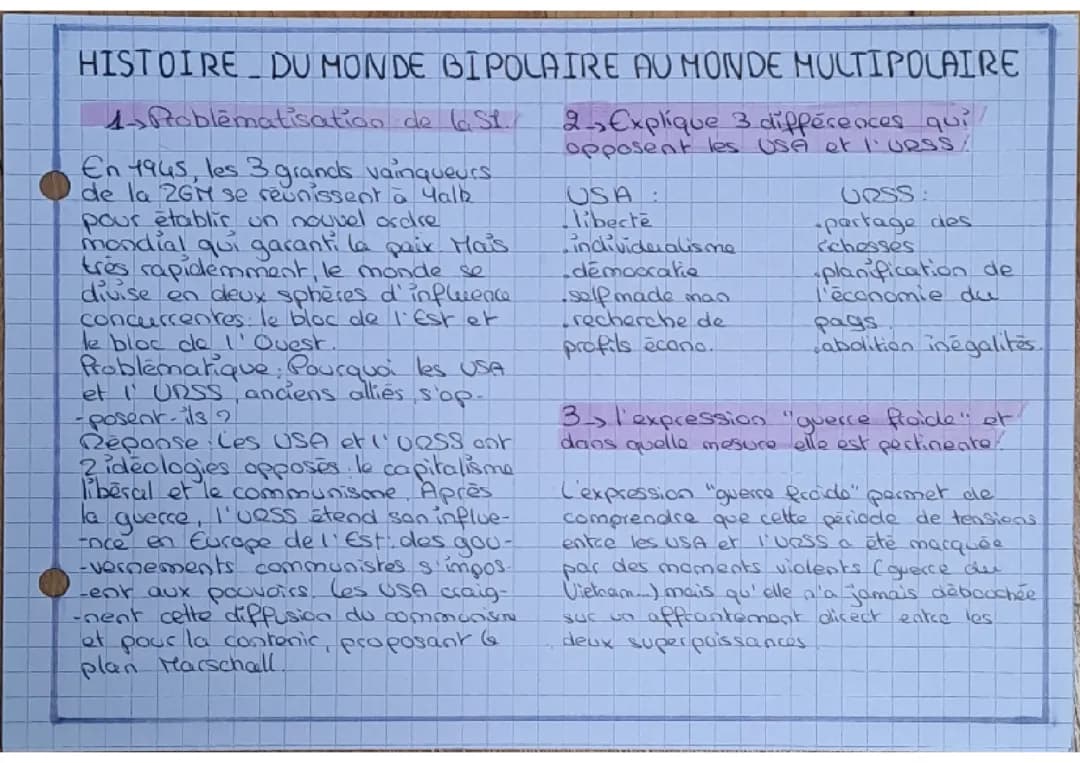 HISTOIRE_DU MONDE BIPOLAIRE AU MONDE MULTIPOLAIRE
1→Problèmatisation de la St.
En 1945, les 3 grands vainqueurs
de la 2GM se réunissent à Yalta
pour établir un nouvel ordre
mondial qui garanti la paix. Mais
très rapidemment, le monde se
divise en deux sphères d'influence
concurrentes: le bloc de l'Est et
le bloc de l'Ouest.
Problèmatique: Pourquoi les USA
et l'URSS, anciens alliés s'op-
-posent-ils?
Réponse: Les USA et l'URSS ont
2 idéologies opposés: le capitalisme
libéral et le communisme. Après
la guerre, l'URSS étend son influe-
-nce en Europe de l'Est: des gou-
-vernements communistes s'impos-
-ent aux pouvoirs. Les USA craig-
-nent cette diffusion du communisme
et pour la contenir, proposant le
plan Marschall.
2→Explique 3 différences qui
opposent les USA et l'URSS.
USA :
.liberté
.individualisme
.démocratie
.self made man
.recherche de
profils écono.
URSS:
.partage des
richesses
.planification de
l'économie du
pays.
.abolition inégalités.
3→l'expression "guerre froide" et
dans quelle mesure elle est pertinente.
L'expression "guerre froide" permet de
comprendre que cette période de tensions
entre les USA et l'URSS a été marquée
par des moments violents (guerre du
Vietnam...) mais qu'elle n'a jamais débouchée
sur un affrontement direct entre les
deux superpuissances